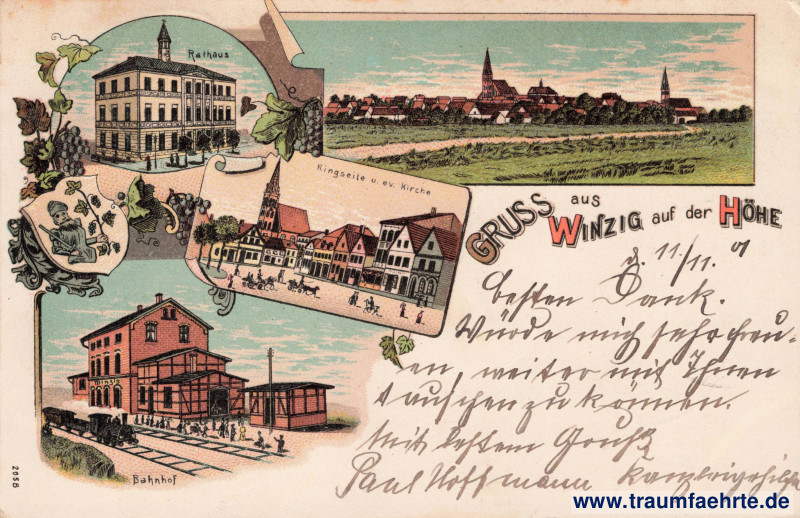 Rathaus
Ringseite u. ev. Kirche
GRUSS aus WINZIG auf der HÖHE
d. 11/11. 01
Besten Dank.
Würde mich sehr freu-
en, weiter mit Ihnen
tauschen zu können.
Mit bestem Gruß
Paul Hoffmann Kanzleigehilfe
WINZIG
Bahnhof
2658
www.traumfaehrte.de